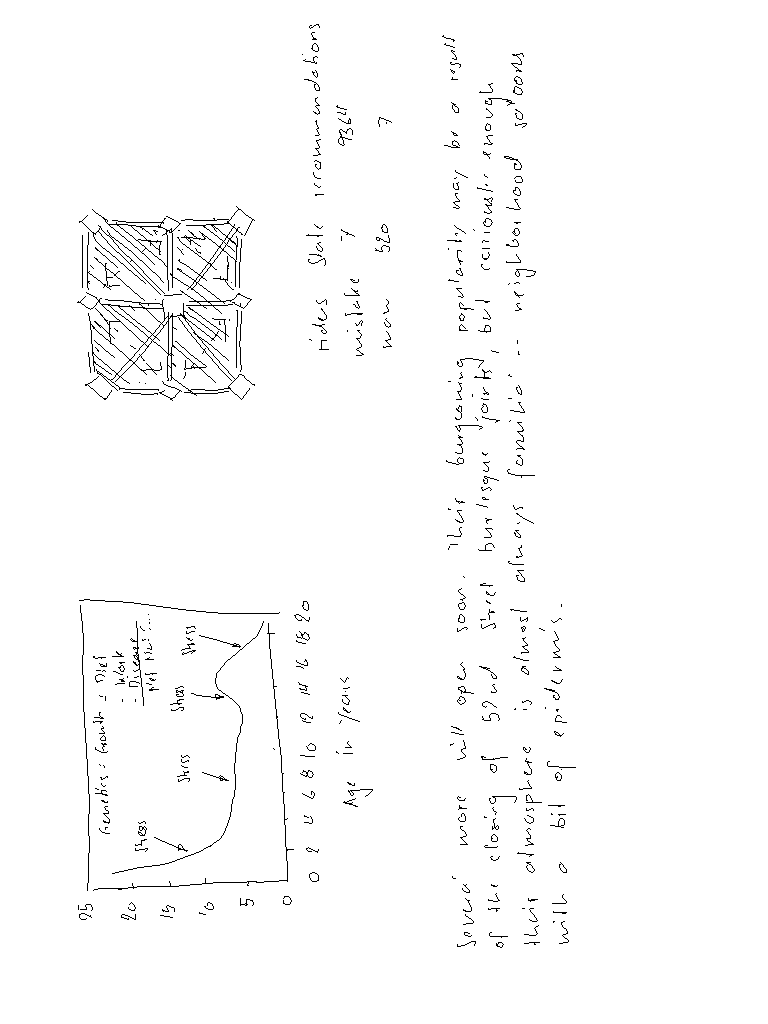 Genetics = Growth = Diet
- Work
- Disease
Stress
Stress
Stress
Stress
25
20
15
10
5
0
0 2 4 6 8 10 12 14 16 18 20
Age in Years
rides State recommendations
mistake 7 9364
man 520 7
Several more will open soon. Their burgeoning popularity may be a result
of the closing of 52nd Street burlesque joints, but curiously enough
their atmosphere is almost always familial -- neighborhood saloons
with a bit of epidermis.